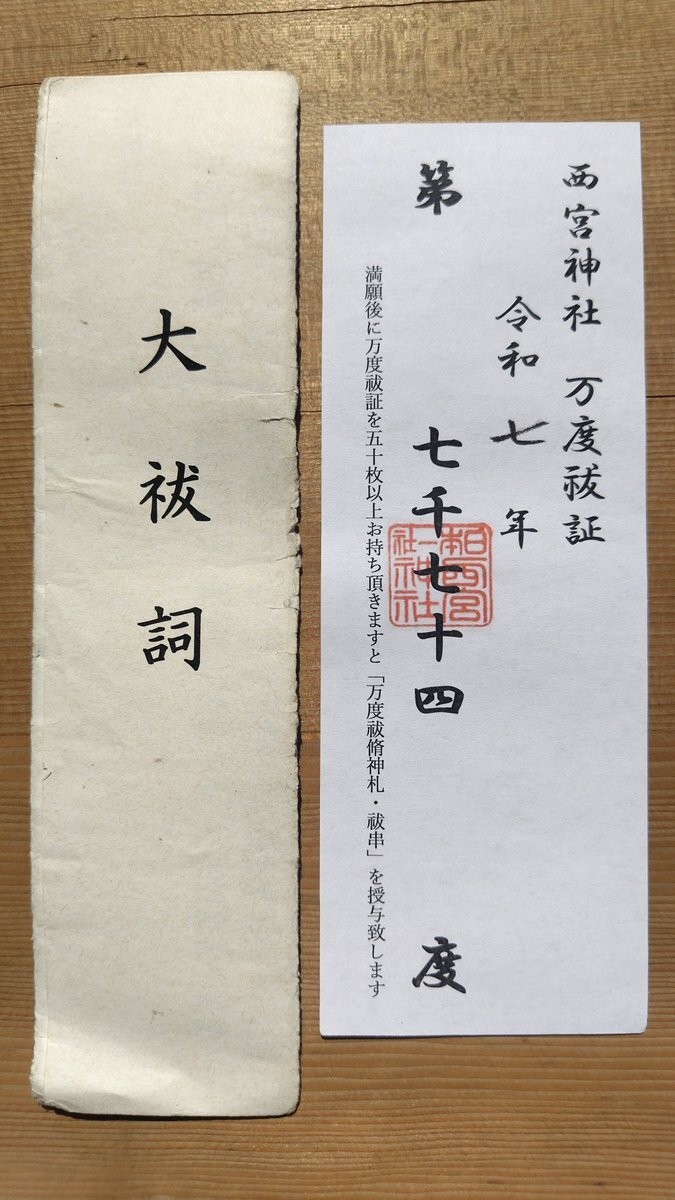 西宮神社 万度祓証
令和 七 年
第 七千七十四 度
満願後に万度祓証を五十枚以上お持ち頂きますと「万度祓脩神札・祓串」を授与致します
大祓詞